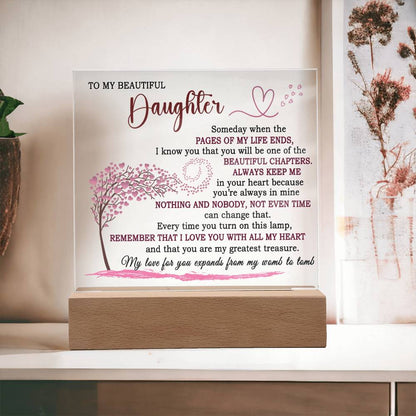 TO MY BEAUTIFUL
Daughter
Someday when the
PAGES OF MY LIFE ENDS,
I know you that you will be one of the
BEAUTIFUL CHAPTERS.
ALWAYS KEEP ME
in your heart because
you're always in mine
NOTHING AND NOBODY, NOT EVEN TIME
can change that.
Every time you turn on this lamp,
REMEMBER THAT I LOVE YOU WITH ALL MY HEART
and that you are my greatest treasure.
My love for you expands from my womb to tomb